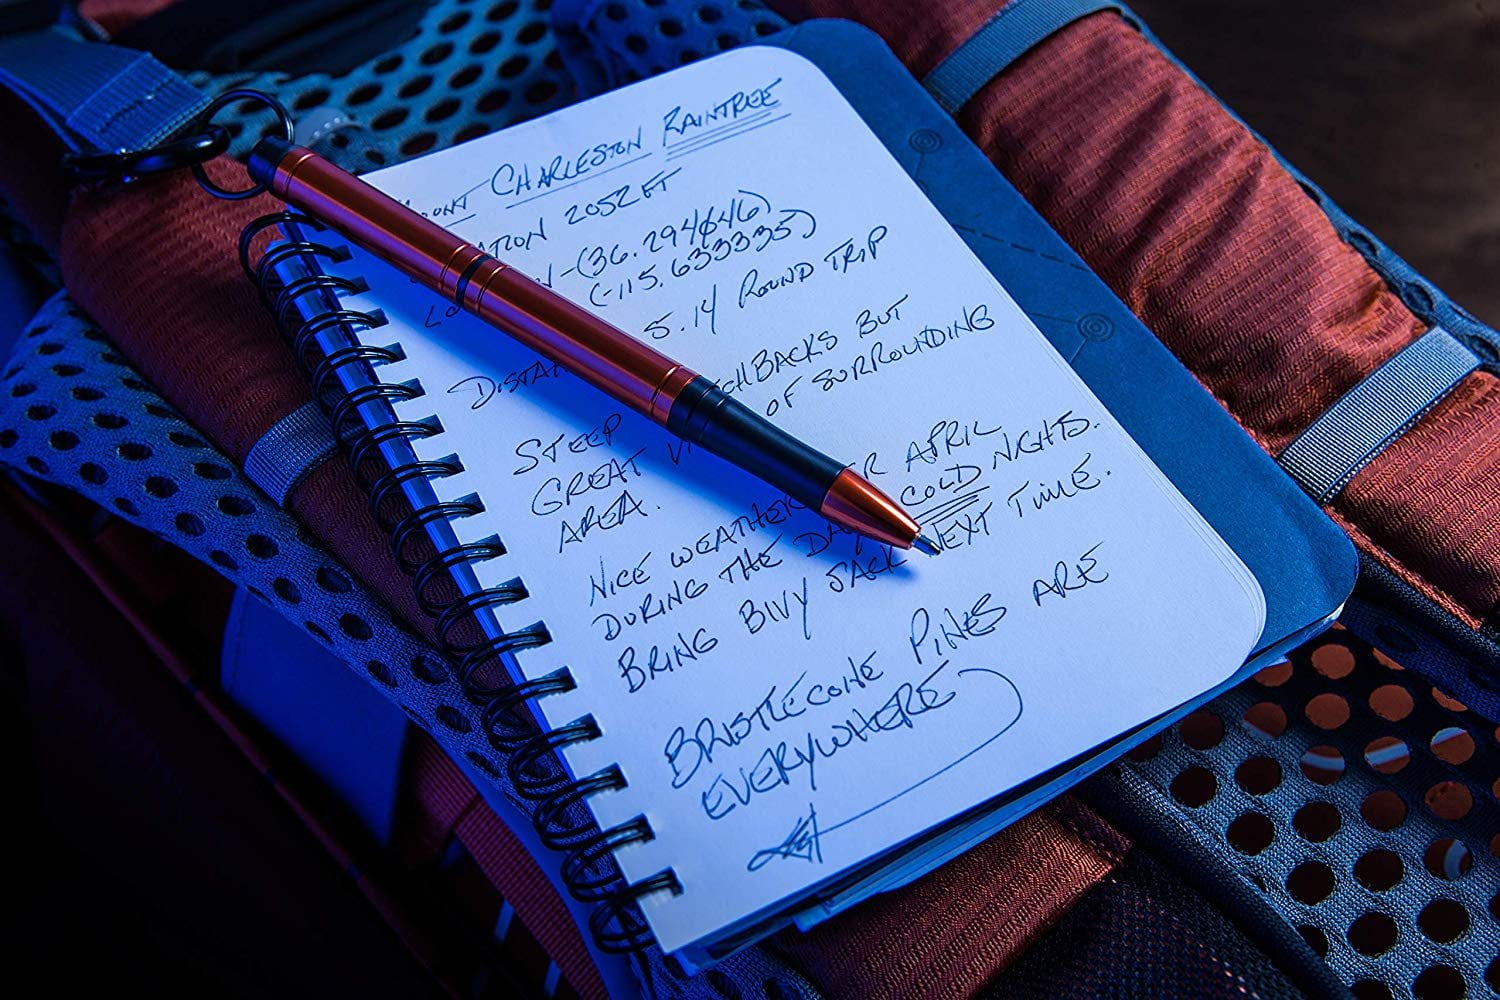 MOUNT CHARLESTON RAINTREE
ATION 2052 FT
LO N-(36.294646)
(-115.633335)
DISTAN 5.14 ROUND TRIP
STEEP CHBACKS BUT
GREAT VI OF SURROUNDING
AREA.
NICE WEATHER ER APRIL
DURING THE DAY COLD NIGHTS.
BRING BIVY SACK NEXT TIME.
BRISTLECONE PINES ARE
EVERYWHERE